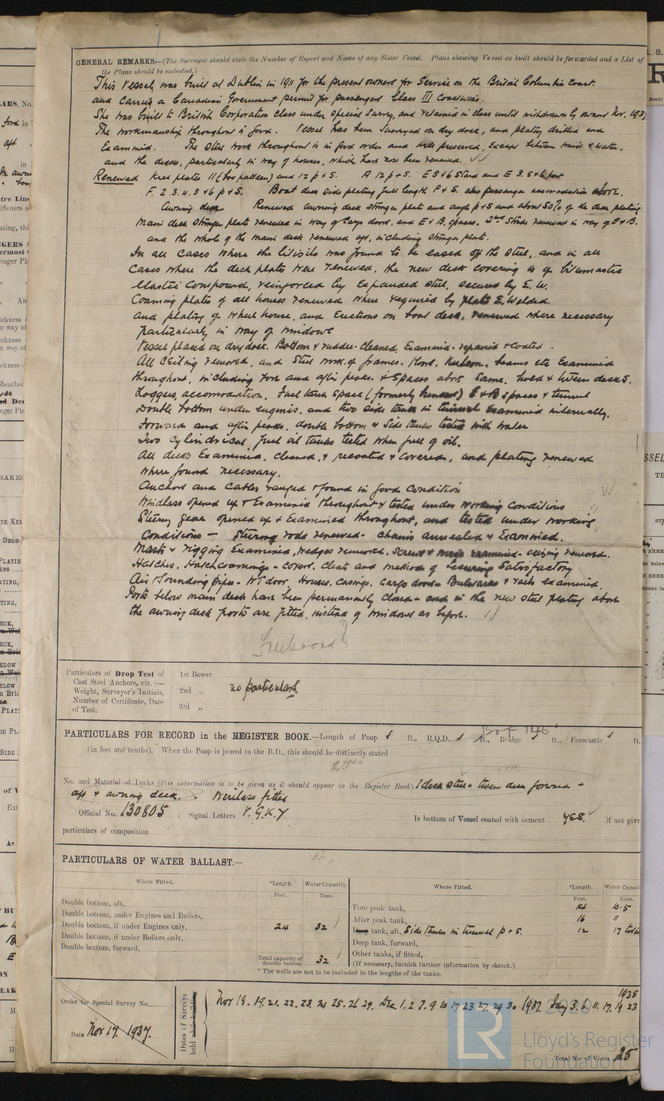 GENERAL REMARKS.—(The Surveyor should state the Number of Report and Name of any Sister Vessel. Plans showing Vessel as built should be forwarded and a List of
the Plans should be embodied.)
This Vessel was built at Dublin in 1911 for the present owners for Service on the British Columbia Coast.
and carries a Canadian Government permit for passengers Class III Coastwise.
She was built to British Corporation class under special survey, and remained in class until withdrawn by owners Nov. 1937
The workmanship throughout is good. Vessel has been surveyed on dry dock, and plating drilled and
Examined. The steel work throughout is in good order and well preserved, except between wind & water,
and the decks, particularly in way of houses, which have now been renewed.
Renewed Keel plates 11 (for pattern) and 12 p & s. A 12 p & s. E 5 & 6 Stbd and E 3. 5 & 6 port
F. 2. 3. 4. 5 & 6 p & s. Boat deck side plating full length P & S. also passenger accomodation above.
Awning deck Renewed awning deck stringer plate and angle p & s and about 50% of the deck plating
Main deck stringer plate renewed in way of Cargo doors, and E & B. spaces. 2nd Strake renewed in way of E & B.
and the whole of the main deck renewed aft, including stringer plate.
In all cases where the was found to be eased off the steel, and in all
cases where the deck plates were renewed, the new deck covering is of bitumastic
Mastic Compound, reinforced by Expanded steel, secured by E. W.
Coaming plates of all houses renewed where required by Welded.
and plating of wheel house, and Erections on boat deck, renewed where necessary
particularly in way of windows
Vessel placed on dry dock. Bottom & rudder cleaned, Examined, repaired & coated.
All Ceiling removed, and steel work of frames. floors. Keelson. beams etc Examined
throughout, including fore and after peaks. & spaces above same, hold & tween decks.
accomodation, Fuel tank space (formerly bunkers) E & B spaces & tunnel
Double bottom under engines, and two side tanks in tunnel Examined internally.
Forward and after peaks, double bottom & side tanks tested with water
Two Cylindrical fuel oil tanks tested when full of oil.
All decks Examined, cleaned, & recoated & covered, and plating renewed
where found necessary.
Anchors and cables ranged & found in good condition
Windlass opened up & Examined throughout & tested under working conditions
Steering gear opened up & Examined throughout, and tested under working
Conditions — Steering rods renewed - chains annealed & Examined.
Masts & rigging Examined, wedges removed. renewed.
Hatches, Hatch coamings - covers, cleats and method of securing Satisfactory
Air & Sounding pipes - WT door, Houses, Casings, Cargo doors - Bulwarks & rails examined
Ports below main deck have been permanently closed - and in the new steel plating above
the awning deck ports are fitted, instead of windows as before.
Freeboard?
Particulars of Drop Test of
Cast Steel Anchors, viz.:—
Weight, Surveyor's Initials,
Number of Certificate, Date
of Test.
1st Bower
2nd „
3rd „
no particulars
PARTICULARS FOR RECORD in the REGISTER BOOK.—Length of Poop ft., R.Q.D. ft., Bridge ft., Forecastle ft.
(in feet and tenths). When the Poop is joined to the B.D., this should be distinctly stated
No. and Material of Decks (this information is to be given as it should appear in the Register Book) 1 deck steel - tween deck forward -
aft & awning deck. Wireless fitted
Official No. 130805 ; Signal Letters V. G. K. Y Is bottom of Vessel coated with cement yes. if not give
particulars of composition
PARTICULARS OF WATER BALLAST.—
Where Fitted. *Length. Water Capacity
Feet. Tons.
Double bottom, aft,
Double bottom, under Engines and Boilers,
Double bottom, if under Engines only, 24 32
Double bottom, if under Boilers only,
Double bottom, forward,
Total capacity of double bottom 32
Where Fitted. *Length. Water Capacity
Feet. Tons.
Fore peak tank, 14 10.5
After peak tank, 16 11
tank, aft, Side tanks in tunnel p & s. 12 17
Deep tank, forward,
Other tanks, if fitted,
(If necessary, furnish further information by sketch.)
* The wells are not to be included in the lengths of the tanks.
Order for Special Survey No.
Date Nov 17. 1937.
Dates of Surveys
held while building
Nov 18. 19. 21. 22. 23. 24 25. 26. 29. Dec 1. 2. 7. 9. 10 17 23 27. 29 30 1937. Jany 3. 6. 11. 17. 19 23 1938
Total No. of Visits 25
© 2020
LR
Lloyd's Register
Foundation